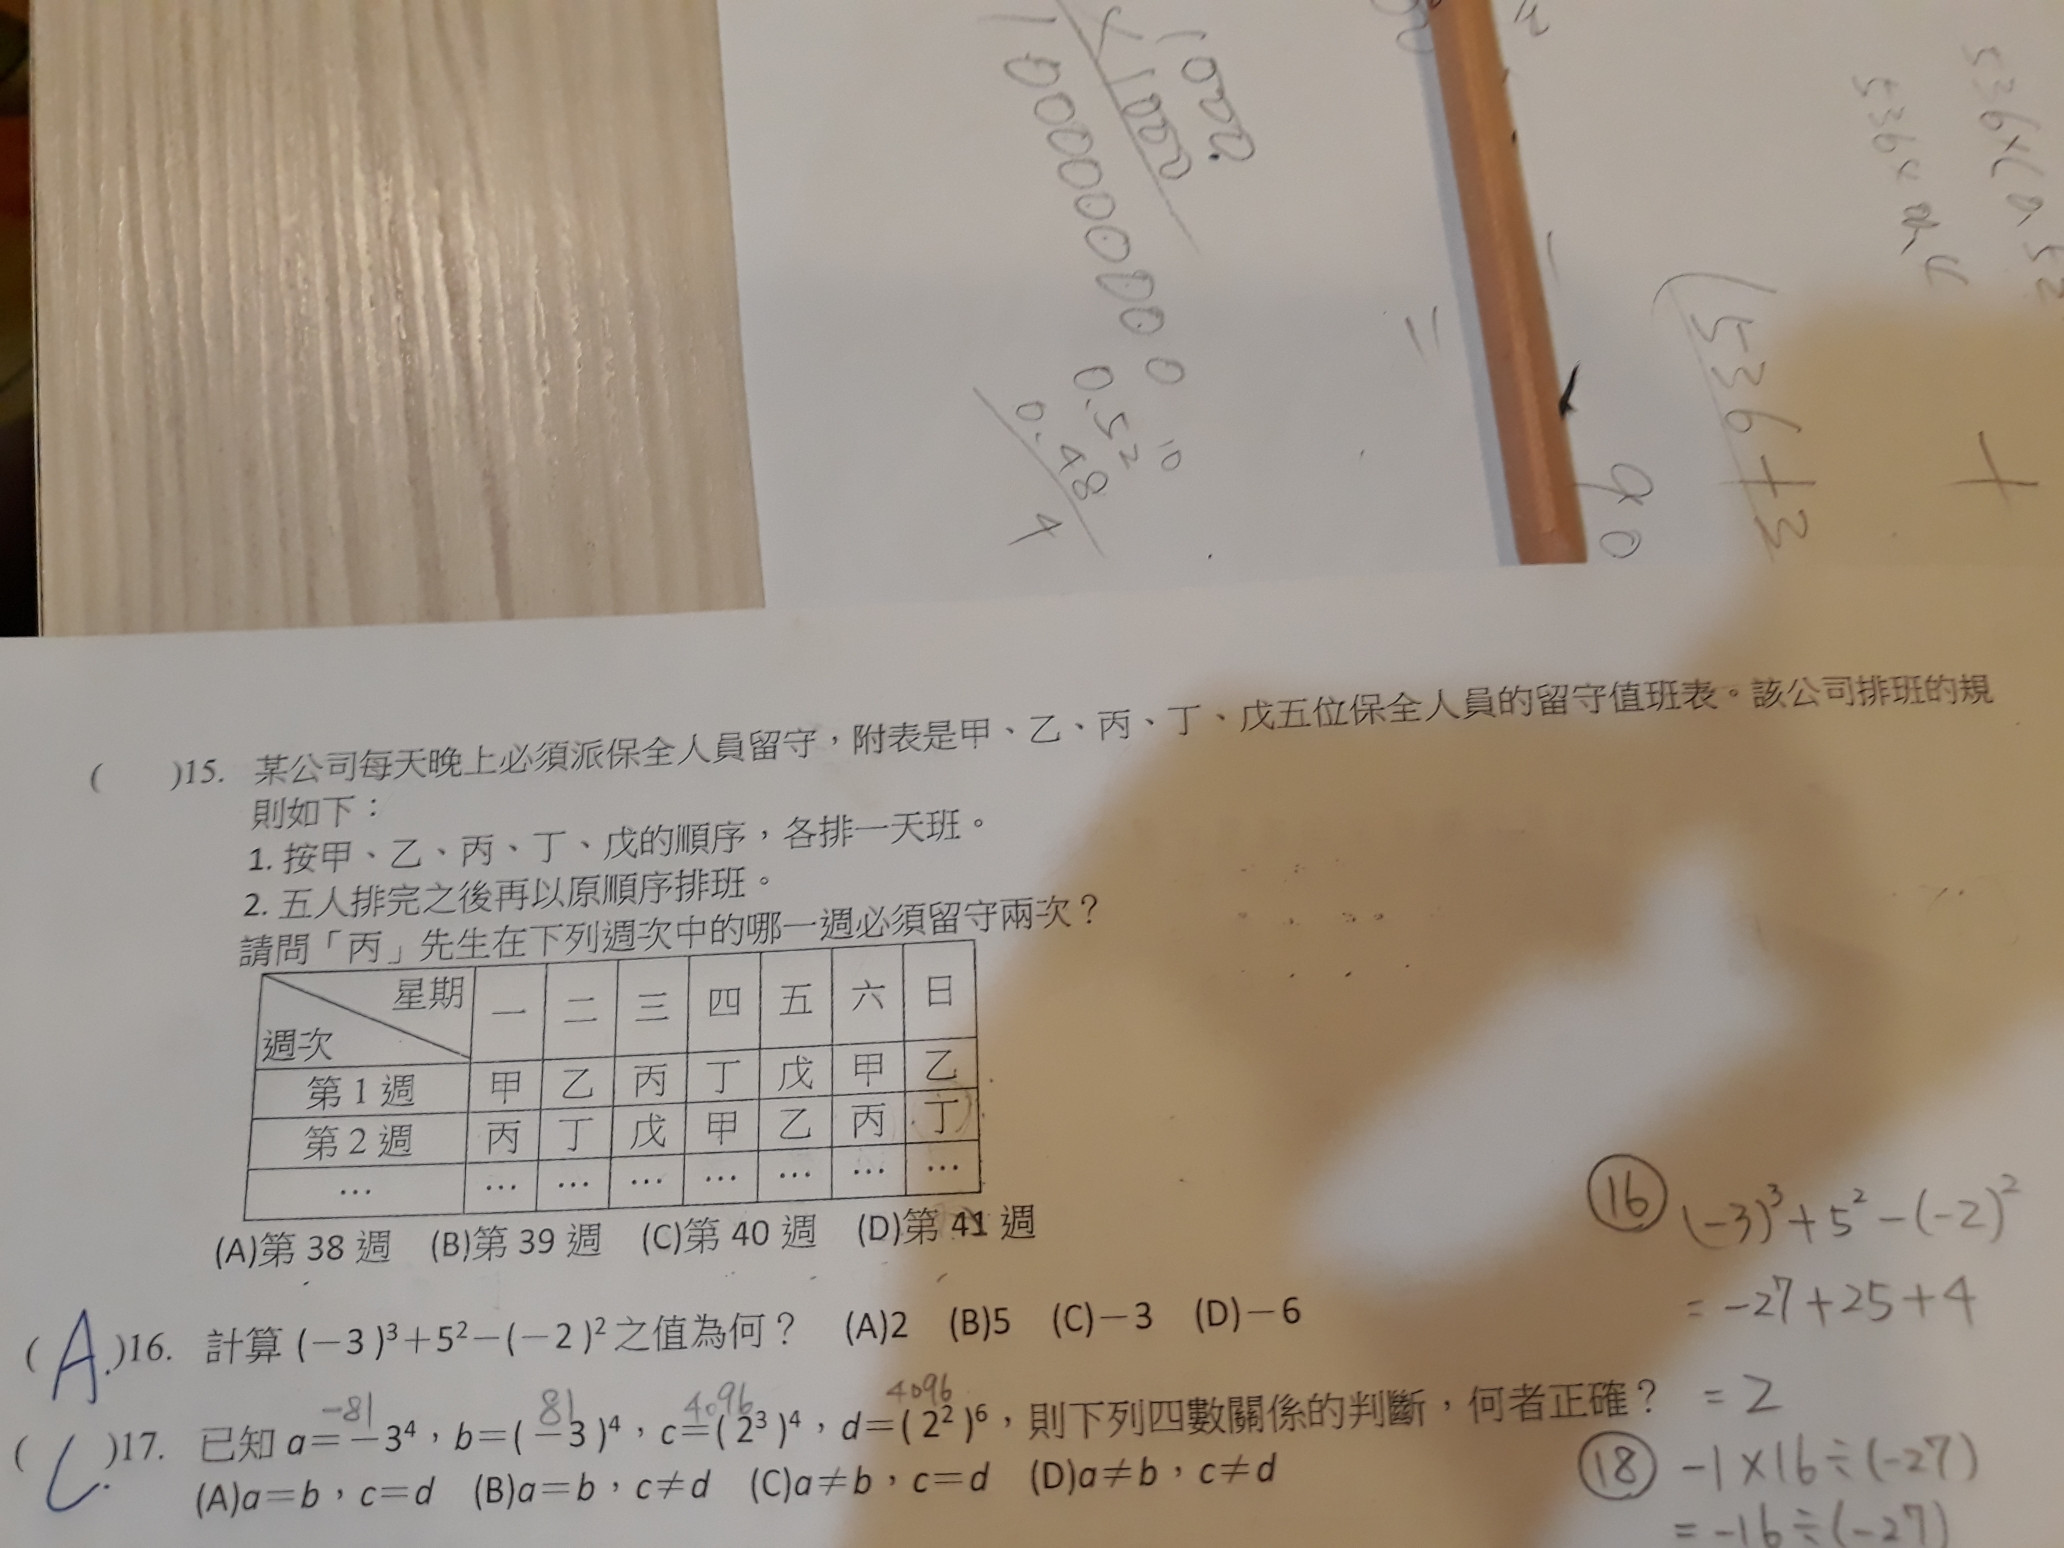 1000
×1000
10000000000
10
0.52
0.48
4
=
90
536×
536×
(536+3
+
( )15. 某公司每天晚上必須派保全人員留守，附表是甲、乙、丙、丁、戊五位保全人員的留守值班表。該公司排班的規
則如下：
1. 按甲、乙、丙、丁、戊的順序，各排一天班。
2. 五人排完之後再以原順序排班。
請問「丙」先生在下列週次中的哪一週必須留守兩次？
星期 一 二 三 四 五 六 日
週次
第 1 週 甲 乙 丙 丁 戊 甲 乙
第 2 週 丙 丁 戊 甲 乙 丙 丁
… … … … … … … …
(A)第 38 週 (B)第 39 週 (C)第 40 週 (D)第 41 週
( A. )16. 計算 (－3 )³＋5²－(－2 )² 之值為何？ (A)2 (B)5 (C)－3 (D)－6
-81 81 4096 4096
( C. )17. 已知 a＝－3⁴，b＝( －3 )⁴，c＝( 2³ )⁴，d＝( 2² )⁶，則下列四數關係的判斷，何者正確？
(A)a＝b，c＝d (B)a＝b，c≠d (C)a≠b，c＝d (D)a≠b，c≠d
⑯ (-3)³+5²-(-2)²
= -27+25+4
= 2
⑱ -1×16÷(-27)
= -16÷(-27)